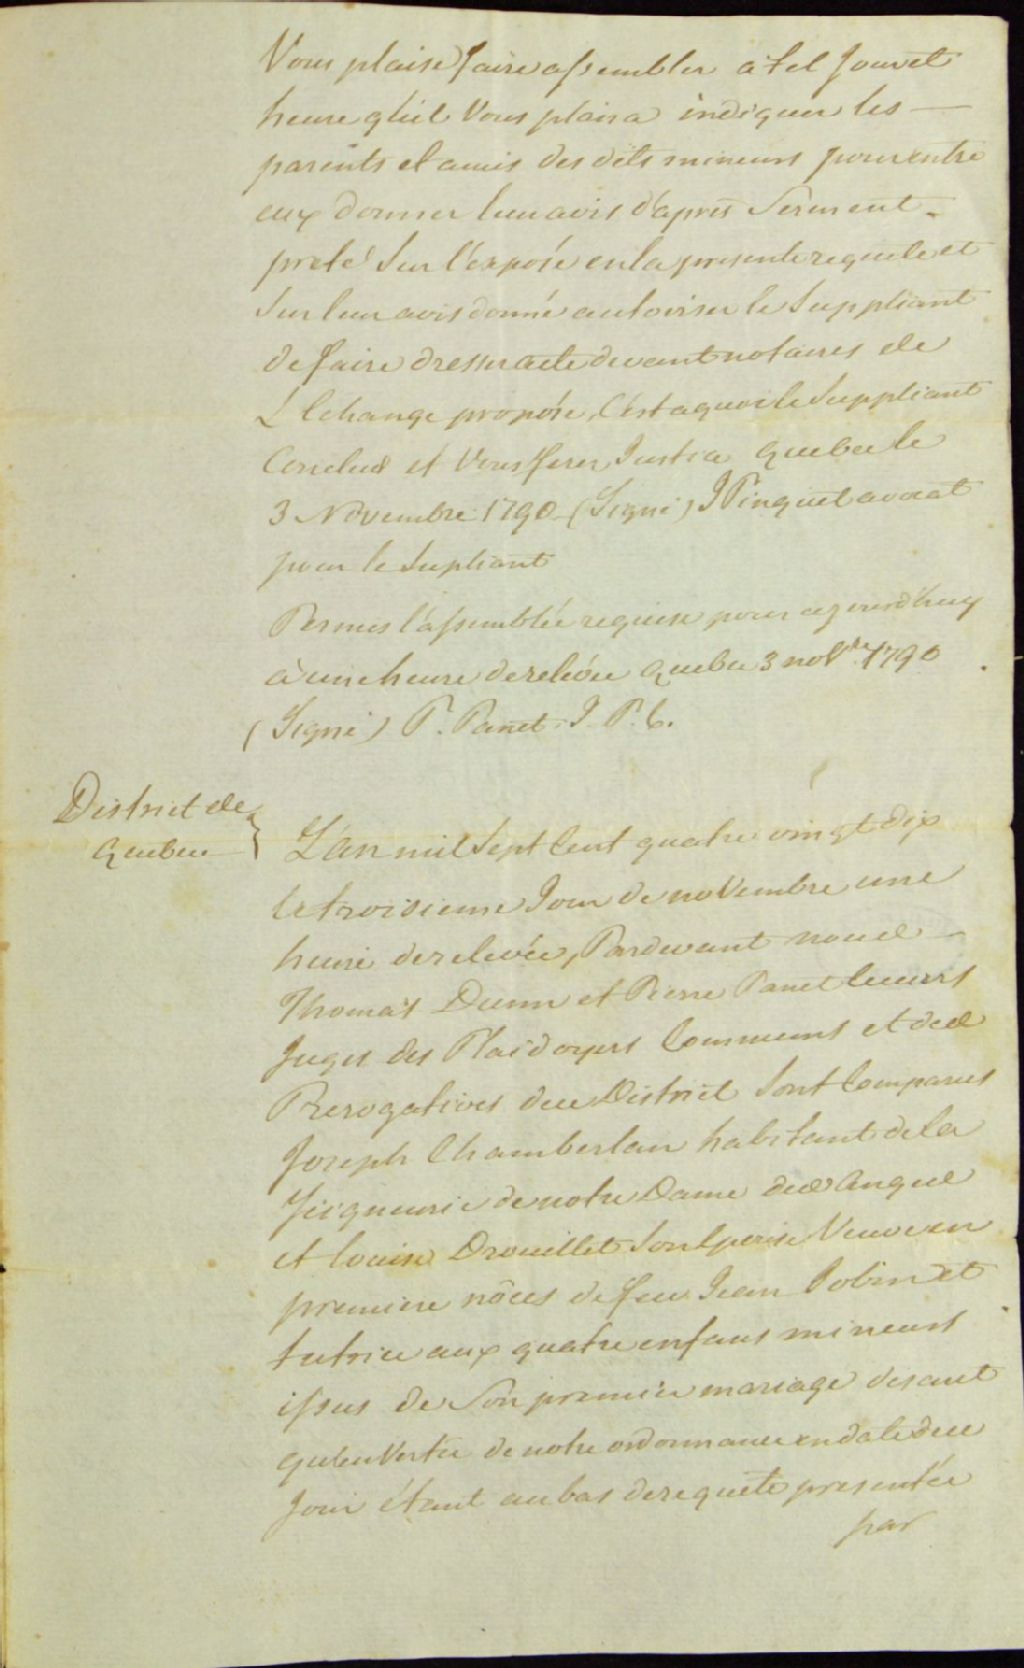 Vous plaise faire assembler a tel Jour et
heure qu'il Vous plaira indiquer les —
parents et amis des dits mineurs pour entre
eux donner leur avis d'après Serment -
preté Sur l'exposé en la presente requete et
Sur leur avis donné autoriser le Suppliant
de faire dresser acte devant notaires de
L'Echange proposé, C'est a quoi le Suppliant
Conclud et Vous ferez Justice Quebec le
3 Novembre 1790 - (Signé) J Pinguet avocat
pour le Supliant
Permis l'assemblée requise pour aujourd'huy
à une heure de relevée Quebec 3 novbre 1790
(Signé) P. Panet J. P. C.
District de
Quebec }
L'an mil Sept Cent quatre vingt dix
le troisieme Jour de novembre une
heure de relevée, Pardevant nous
Thomas Dunn et Pierre Panet Ecuiers
Juges des Plaidoyers Communs et des
Prerogatives du District Sont Comparus
Joseph Chamberlan habitant de la
Seigneurie de notre Dame des Anges
et Louise Drouillet Son Epouse Veuve en
premiere nôces de feu Jean Jobin et
tutrice aux quatre enfans mineurs
issus de Son premier mariage disant
qu'en Vertu de notre ordonnance en date du
Jour étant au bas de requête presentée
par